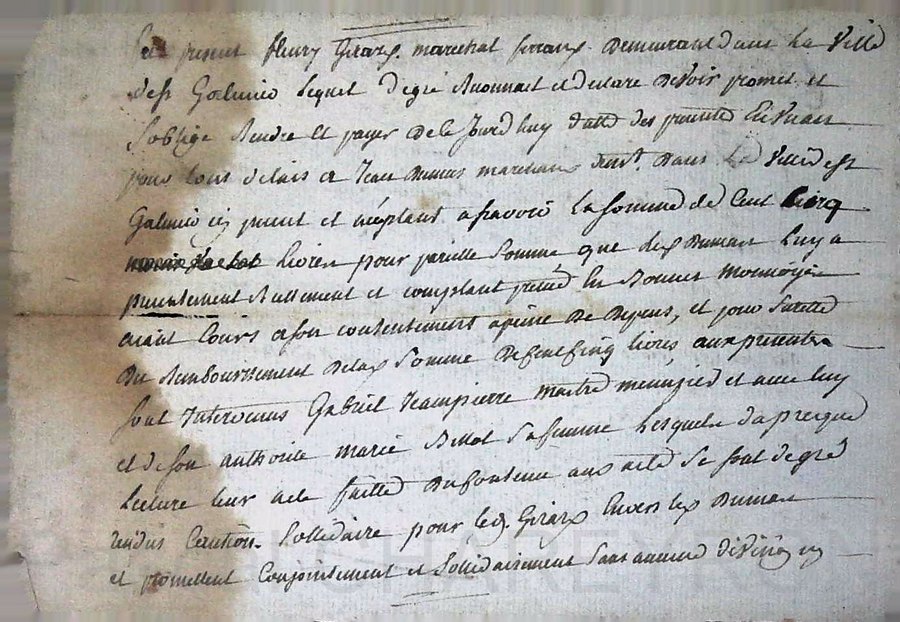 present fleury Girard marechal ferrant Demeurant dans la Ville
de st Galmier lequel de gré Reconnait et declare devoir promet et
s'oblige Rendre et payer de ce Jourd'huy datte des presentes En un an
pour tous delais a Jean Dumas marchand demt. Dans la Ville de st
Galmier cy present et aceptant a savoir la somme de Cent Cinq
livres pour pareille somme que led Dumas luy a
presentement Reellement et comptant preté En Bonnes Monnoyes
aiant Cours a son contentement a peine de Depens, et pour suretté
Du Remboursement De lad somme de Cent Cinq livres, aux presentes
sont Intervenus Gabriel Jeanpierre maitre menuizier et avec luy
et de son authorité marie sa femme lesquels d'apres que
lecture leur a eté faitte Du Contenu aux acte se sont de gré
rendus Caution Sollidaire pour led. Girard Envers led Dumas
et promettent Conjointement et Sollidairement sans aucune division ny